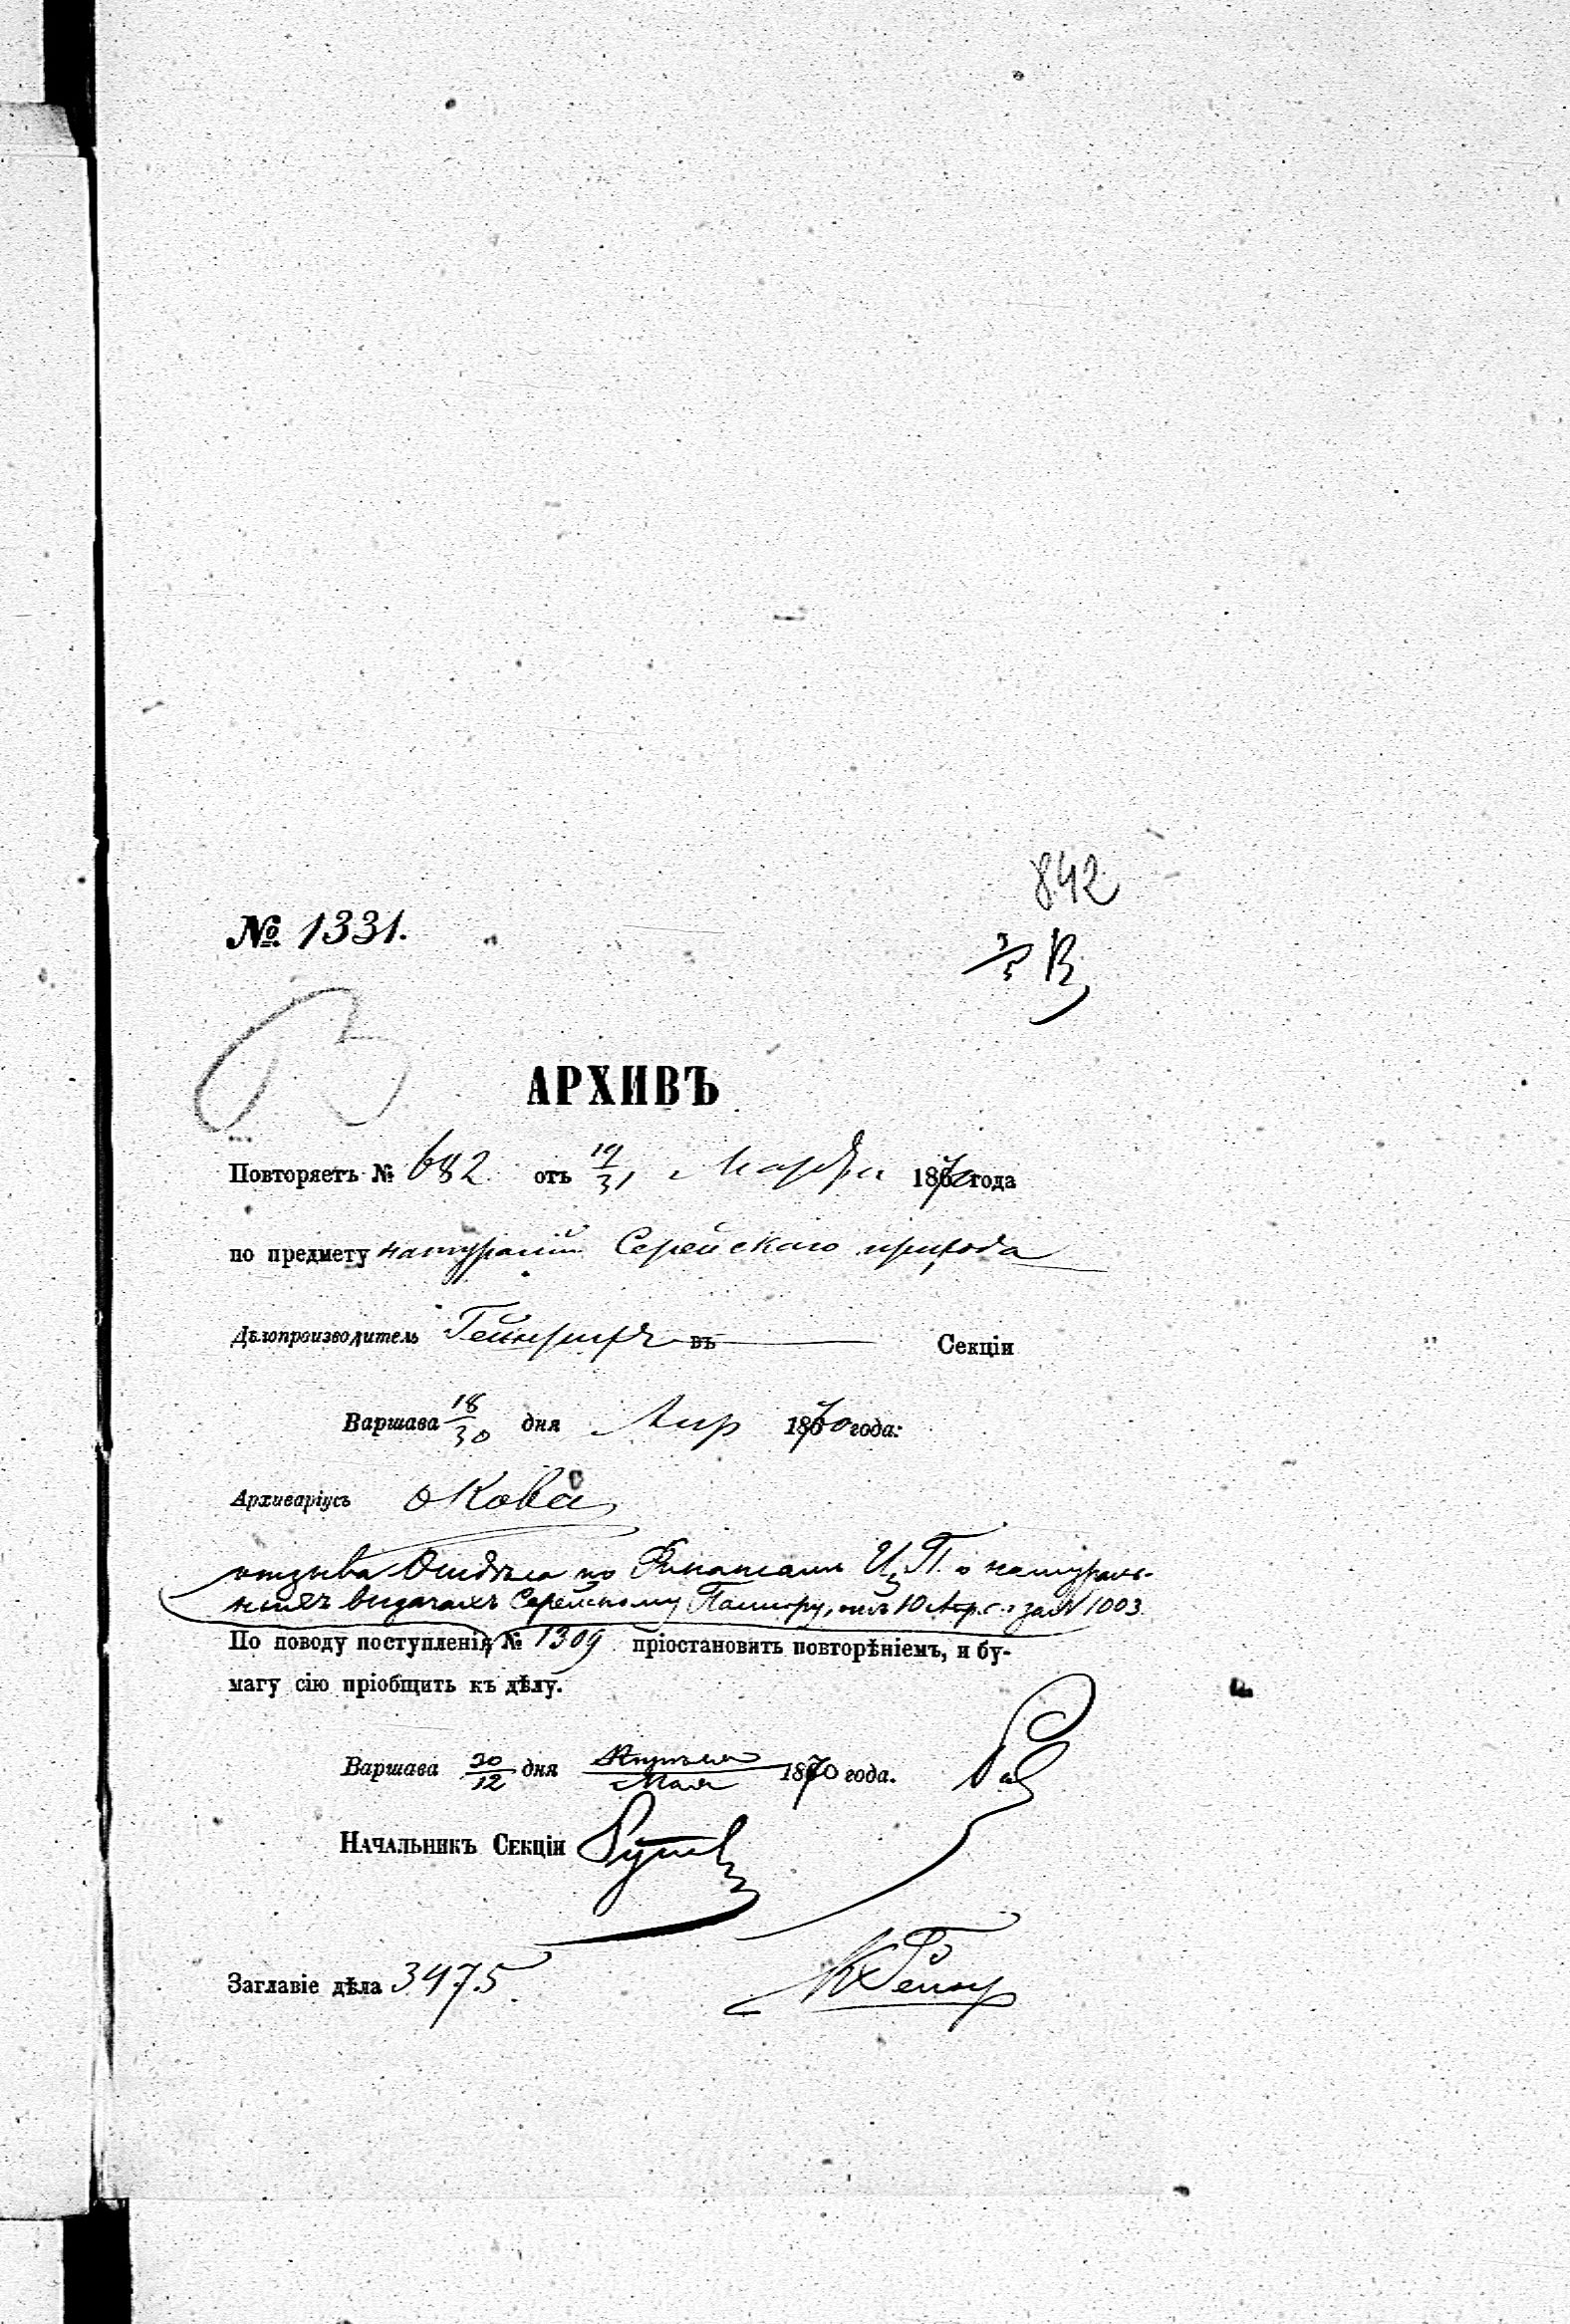 842
№ 1331.
АРХИВЪ
Повторяетъ № 682 отъ 19/31 Марта 1870 года
по предмету натураліи Серейскаго прихода
Дѣлопроизводитель Гейнрихъ въ Секціи
Варшава 18/30 дня Апр 1870 года:
Архиваріусъ
отзыва Отдѣла по Финансамъ Ц. П. о натураль-
ныхъ выдачахъ Серейскому Пастору, отъ 10 Апр. с. г. за N 1003.
По поводу поступленія № 1309 пріостановить повторѣніемъ, и бу-
магу сію пріобщить къ дѣлу.
Варшава 30/12 дня Апрѣля/Мая 1870 года.
Начальникъ Секціи
Заглавіе дѣла 3475